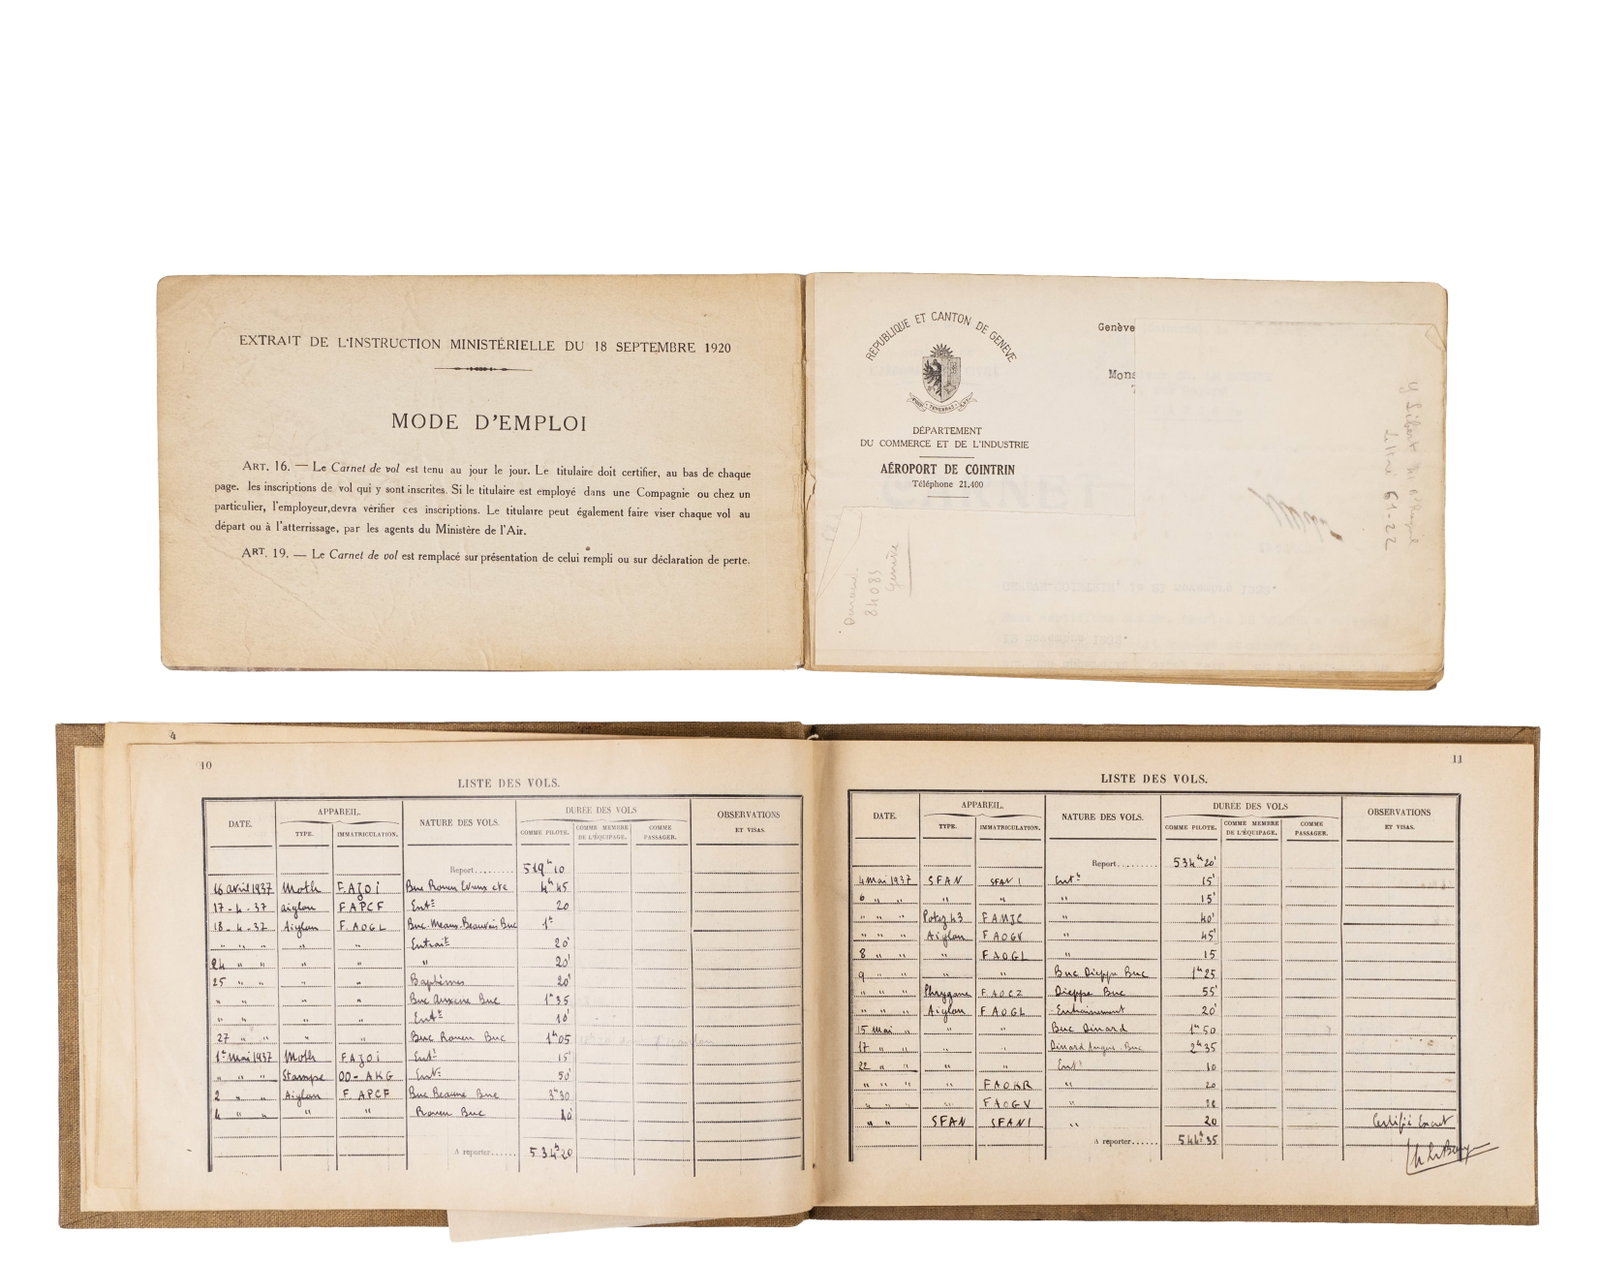 EXTRAIT DE L'INSTRUCTION MINISTÉRIELLE DU 18 SEPTEMBRE 1920
MODE D'EMPLOI
ART. 16. — Le Carnet de vol est tenu au jour le jour. Le titulaire doit certifier, au bas de chaque
page, les inscriptions de vol qui y sont inscrites. Si le titulaire est employé dans une Compagnie ou chez un
particulier, l'employeur,devra vérifier ces inscriptions. Le titulaire peut également faire viser chaque vol au
départ ou à l'atterrissage, par les agents du Ministère de l'Air.
ART. 19. — Le Carnet de vol est remplacé sur présentation de celui rempli ou sur déclaration de perte.
RÉPUBLIQUE ET CANTON DE GENÈVE
POST TENEBRAS LUX
DÉPARTEMENT
DU COMMERCE ET DE L'INDUSTRIE
AÉROPORT DE COINTRIN
Téléphone 21.400
Genève
Mons
61-22
84083
Genève
4
10
LISTE DES VOLS.
DATE. APPAREIL. NATURE DES VOLS. DURÉE DES VOLS OBSERVATIONS ET VISAS.
TYPE. IMMATRICULATION. COMME PILOTE. COMME MEMBRE DE L'ÉQUIPAGE. COMME PASSAGER.
Report......... 519h10
16 avril 1937 Moth F.AJOI Buc Rouen Evreux etc 4h45
17-4-37 aiglon F.APCF Entt 20
18-4-37 Aiglon F.AOGL Buc-Mans-Beauvais Buc 1h
" " " " " Entrait 20'
24 " " " " " 20'
25 " " " " Baptêmes 20'
" " " " Buc Auxerre Buc 1h35
" " " " Entt 10'
27 " " " " Buc Rouen Buc 1h05
1er Mai 1937 Moth F.AJOI Entt 15'
" " " Stampe OO-AKG Entt 50'
2 " " Aiglon F.APCF Buc Beaune Buc 3h30
4 " " " " Rouen Buc 40'
A reporter....... 534h20
11
LISTE DES VOLS.
DATE. APPAREIL. NATURE DES VOLS. DURÉE DES VOLS OBSERVATIONS ET VISAS.
TYPE. IMMATRICULATION. COMME PILOTE. COMME MEMBRE DE L'ÉQUIPAGE. COMME PASSAGER.
Report......... 534h20'
4 Mai 1937 SFAN SFAN 1 Entt 15'
6 " " " " " 15'
" " " Potez 43 F.AMJC " 40'
" " " Aiglon F.AOGV " 45'
8 " " " F.AOGL " 15
9 " " " " Buc Dieppe Buc 1h25
" " " Phrygane F.AOCZ Dieppe Buc 55'
" " " Aiglon F.AOGL Entrainement 20'
15 Mai " " " Buc Dinard 1h50
17 " " " " Dinard Angers Buc 2h35
22 " " " " Entt 10
" " " " F.AOKR " 20
" " " " F.AOGV "
" " SFAN SFAN1 " 20 Certifié Exact
A reporter...... 544h35